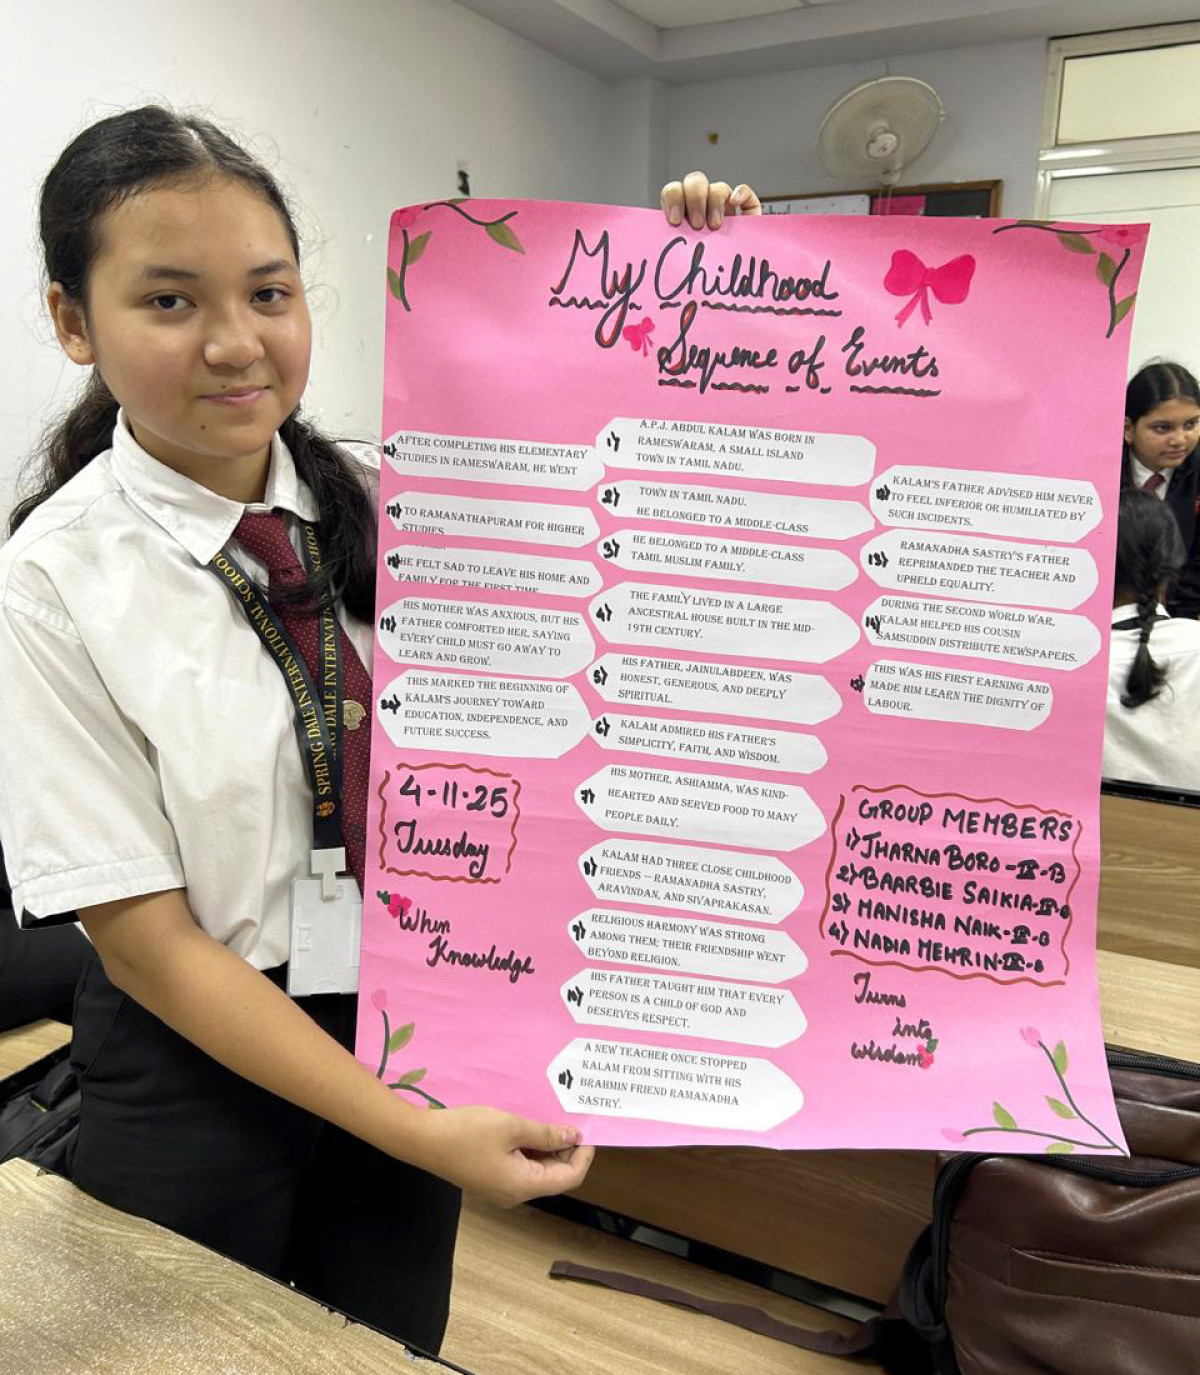 My Childhood
Sequence of Events
1) A.P.J. ABDUL KALAM WAS BORN IN
RAMESWARAM, A SMALL ISLAND
TOWN IN TAMIL NADU.
2) TOWN IN TAMIL NADU.
HE BELONGED TO A MIDDLE-CLASS
3) HE BELONGED TO A MIDDLE-CLASS
TAMIL MUSLIM FAMILY.
4) THE FAMILY LIVED IN A LARGE
ANCESTRAL HOUSE BUILT IN THE MID-
19TH CENTURY.
5) HIS FATHER, JAINULABDEEN, WAS
HONEST, GENEROUS, AND DEEPLY
SPIRITUAL.
6) KALAM ADMIRED HIS FATHER'S
SIMPLICITY, FAITH, AND WISDOM.
7) HIS MOTHER, ASHIAMMA, WAS KIND-
HEARTED AND SERVED FOOD TO MANY
PEOPLE DAILY.
8) KALAM HAD THREE CLOSE CHILDHOOD
FRIENDS – RAMANADHA SASTRY,
ARAVINDAN, AND SIVAPRAKASAN.
9) RELIGIOUS HARMONY WAS STRONG
AMONG THEM; THEIR FRIENDSHIP WENT
BEYOND RELIGION.
10) HIS FATHER TAUGHT HIM THAT EVERY
PERSON IS A CHILD OF GOD AND
DESERVES RESPECT.
11) A NEW TEACHER ONCE STOPPED
KALAM FROM SITTING WITH HIS
BRAHMIN FRIEND RAMANADHA
SASTRY.
12) KALAM'S FATHER ADVISED HIM NEVER
TO FEEL INFERIOR OR HUMILIATED BY
SUCH INCIDENTS.
13) RAMANADHA SASTRY'S FATHER
REPRIMANDED THE TEACHER AND
UPHELD EQUALITY.
14) DURING THE SECOND WORLD WAR,
KALAM HELPED HIS COUSIN
SAMSUDDIN DISTRIBUTE NEWSPAPERS.
15) THIS WAS HIS FIRST EARNING AND
MADE HIM LEARN THE DIGNITY OF
LABOUR.
16) AFTER COMPLETING HIS ELEMENTARY
STUDIES IN RAMESWARAM, HE WENT
17) TO RAMANATHAPURAM FOR HIGHER
STUDIES.
18) HE FELT SAD TO LEAVE HIS HOME AND
FAMILY FOR THE FIRST TIME
19) HIS MOTHER WAS ANXIOUS, BUT HIS
FATHER COMFORTED HER, SAYING
EVERY CHILD MUST GO AWAY TO
LEARN AND GROW.
20) THIS MARKED THE BEGINNING OF
KALAM'S JOURNEY TOWARD
EDUCATION, INDEPENDENCE, AND
FUTURE SUCCESS.
4-11-25
Tuesday
When
Knowledge
GROUP MEMBERS
1) JHARNA BORO-IX-B
2) BAARBIE SAIKIA-IX-B
3) MANISHA NAIK-IX-B
4) NADIA MEHRIN-IX-B
Turns
into
wisdom
SPRING DALE INTERNATIONAL SCHOOL
NG DALE INTERNATIONAL SCHOO